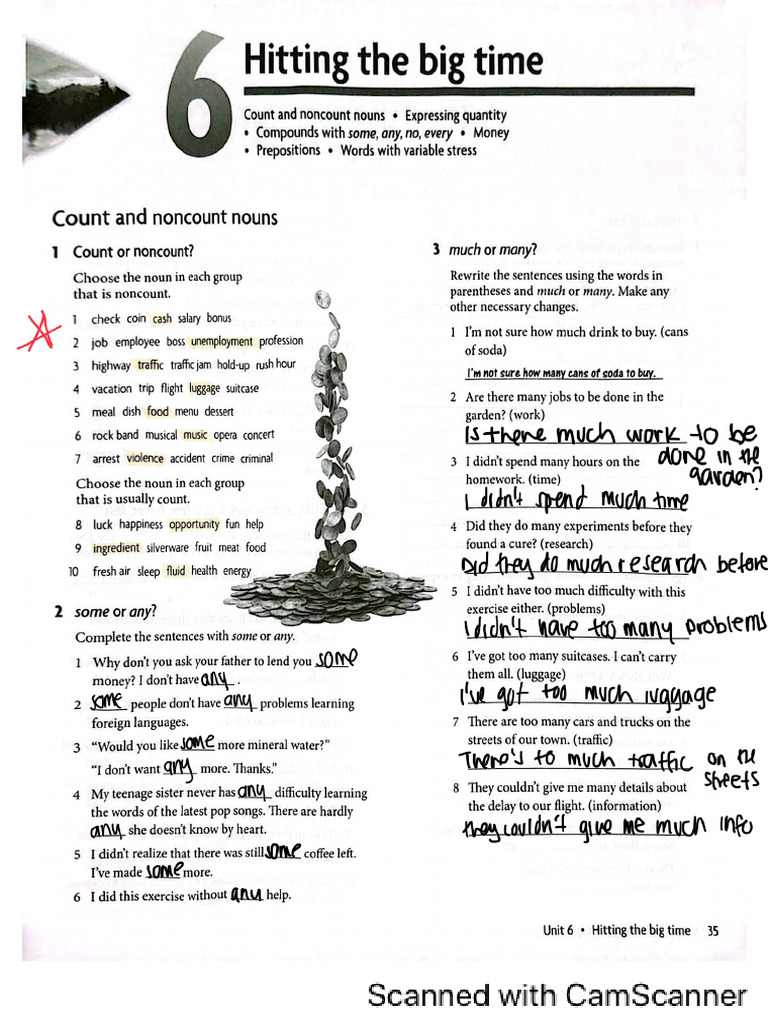 6
Hitting the big time
Count and noncount nouns • Expressing quantity
• Compounds with some, any, no, every • Money
• Prepositions • Words with variable stress
Count and noncount nouns
1 Count or noncount?
Choose the noun in each group
that is noncount.
1 check coin cash salary bonus
2 job employee boss unemployment profession
3 highway traffic traffic jam hold-up rush hour
4 vacation trip flight luggage suitcase
5 meal dish food menu dessert
6 rock band musical music opera concert
7 arrest violence accident crime criminal
Choose the noun in each group
that is usually count.
8 luck happiness opportunity fun help
9 ingredient silverware fruit meat food
10 fresh air sleep fluid health energy
2 some or any?
Complete the sentences with some or any.
1 Why don't you ask your father to lend you some
money? I don't have any.
2 some people don't have any problems learning
foreign languages.
3 "Would you like some more mineral water?"
"I don't want any more. Thanks."
4 My teenage sister never has any difficulty learning
the words of the latest pop songs. There are hardly
any she doesn't know by heart.
5 I didn't realize that there was still some coffee left.
I've made some more.
6 I did this exercise without any help.
3 much or many?
Rewrite the sentences using the words in
parentheses and much or many. Make any
other necessary changes.
1 I'm not sure how much drink to buy. (cans
of soda)
I'm not sure how many cans of soda to buy.
2 Are there many jobs to be done in the
garden? (work)
Is there much work to be
done in the
garden?
3 I didn't spend many hours on the
homework. (time)
I didn't spend much time
4 Did they do many experiments before they
found a cure? (research)
Did they do much research before
5 I didn't have too much difficulty with this
exercise either. (problems)
I didn't have too many problems
6 I've got too many suitcases. I can't carry
them all. (luggage)
I've got too much luggage
7 There are too many cars and trucks on the
streets of our town. (traffic)
There's to much traffic on the
streets
8 They couldn't give me many details about
the delay to our flight. (information)
they couldn't give me much info
Unit 6 • Hitting the big time 35
Scanned with CamScanner